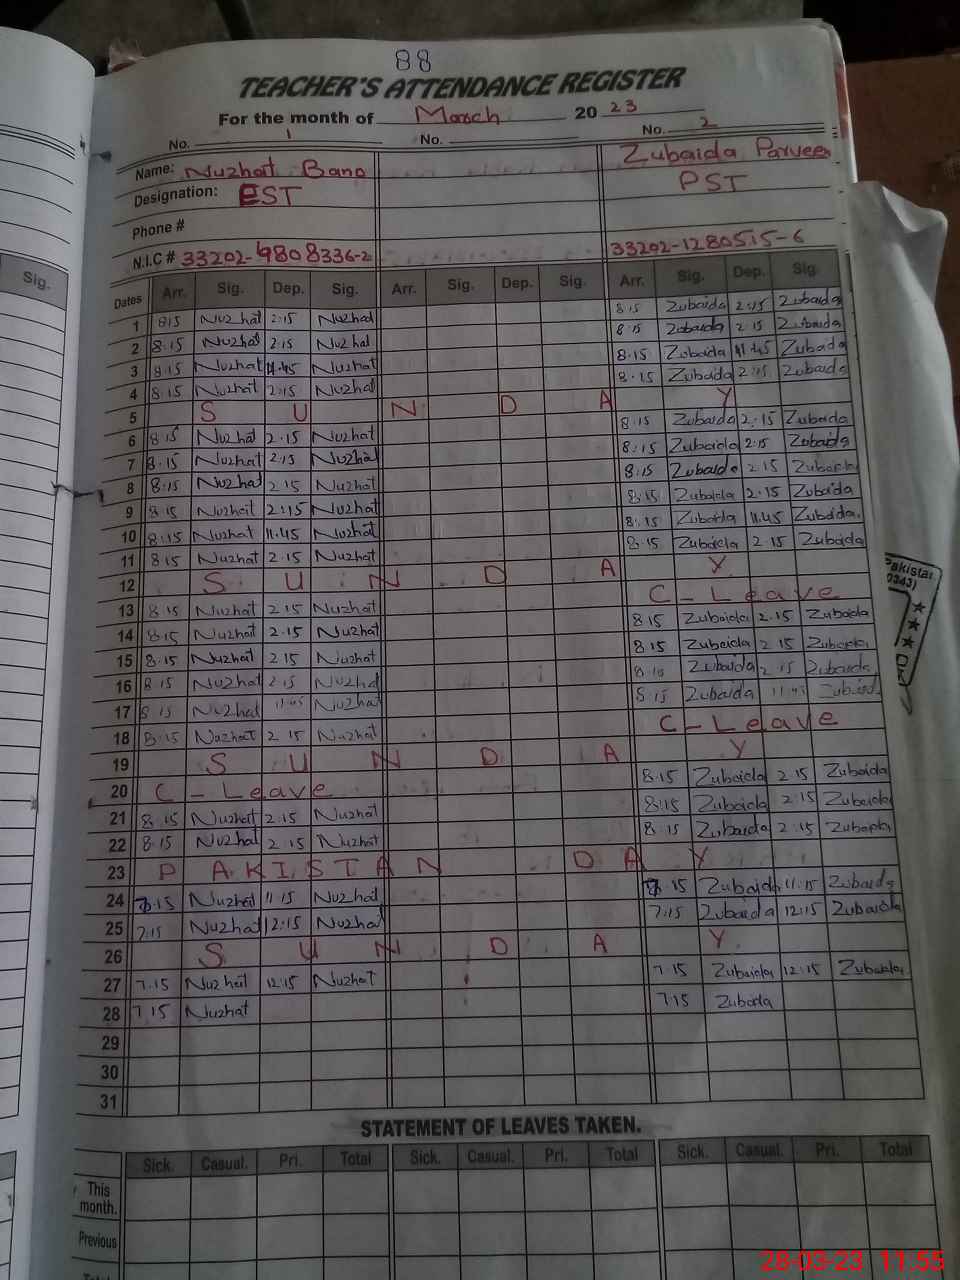 88
TEACHER'S ATTENDANCE REGISTER
For the month of March 20 23
No. 1 No. No. 2
Name: Nuzhat Bano Zubaida Parveen
Designation: EST PST
Phone #
N.I.C # 33202-9808336-2 33202-1280515-6
Sig.
Dates Arr. Sig. Dep. Sig. Arr. Sig. Dep. Sig. Arr. Sig. Dep. Sig.
1 8:15 Nuzhat 2:15 Nuzhat 8:15 Zubaida 2:15 Zubaida
2 8:15 Nuzhat 2:15 Nuzhat 8:15 Zubaida 2:15 Zubaida
3 8:15 Nuzhat 11.45 Nuzhat 8.15 Zubaida 11.45 Zubaida
4 8:15 Nuzhat 2:15 Nuzhat 8.15 Zubaida 2:15 Zubaida
5 S U N D A Y
6 8:15 Nuzhat 2.15 Nuzhat 8.15 Zubaida 2.15 Zubaida
7 8.15 Nuzhat 2:15 Nuzhat 8:15 Zubaida 2:15 Zubaida
8 8:15 Nuzhat 2 15 Nuzhat 8.15 Zubaida 2 15 Zubaida
9 8:15 Nuzhat 2:15 Nuzhat 8.15 Zubaida 2.15 Zubaida
10 8:15 Nuzhat 11.45 Nuzhat 8.15 Zubaida 11.45 Zubaida
11 8:15 Nuzhat 2.15 Nuzhat 8.15 Zubaida 2.15 Zubaida
12 S U N D A Y
13 8.15 Nuzhat 2.15 Nuzhat C - Leave
14 8.15 Nuzhat 2.15 Nuzhat 8.15 Zubaida 2.15 Zubaida
15 8.15 Nuzhat 2 15 Nuzhat 8.15 Zubaida 2 15 Zubaida
16 8.15 Nuzhat 2.15 Nuzhat 8.15 Zubaida 2 15 Zubaida
17 8.15 Nuzhat 11.45 Nuzhat 8.15 Zubaida 11.45 Zubaida
18 8.15 Nuzhat 2 15 Nuzhat C - Leave
19 S U N D A Y
20 C - Leave 8.15 Zubaida 2.15 Zubaida
21 8.15 Nuzhat 2.15 Nuzhat 8:15 Zubaida 2.15 Zubaida
22 8.15 Nuzhat 2.15 Nuzhat 8.15 Zubaida 2.15 Zubaida
23 P A K I S T A N D A Y
24 7.15 Nuzhat 11.15 Nuzhat 7.15 Zubaida 11.15 Zubaida
25 7:15 Nuzhat 12.15 Nuzhat 7:15 Zubaida 12:15 Zubaida
26 S U N D A Y
27 7.15 Nuzhat 12.15 Nuzhat 7.15 Zubaida 12:15 Zubaida
28 7.15 Nuzhat 7.15 Zubaida
29
30
31
STATEMENT OF LEAVES TAKEN.
Sick. Casual. Pri. Total Sick. Casual. Pri. Total Sick. Casual. Pri. Total
This month.
Previous
28-03-23 11:55